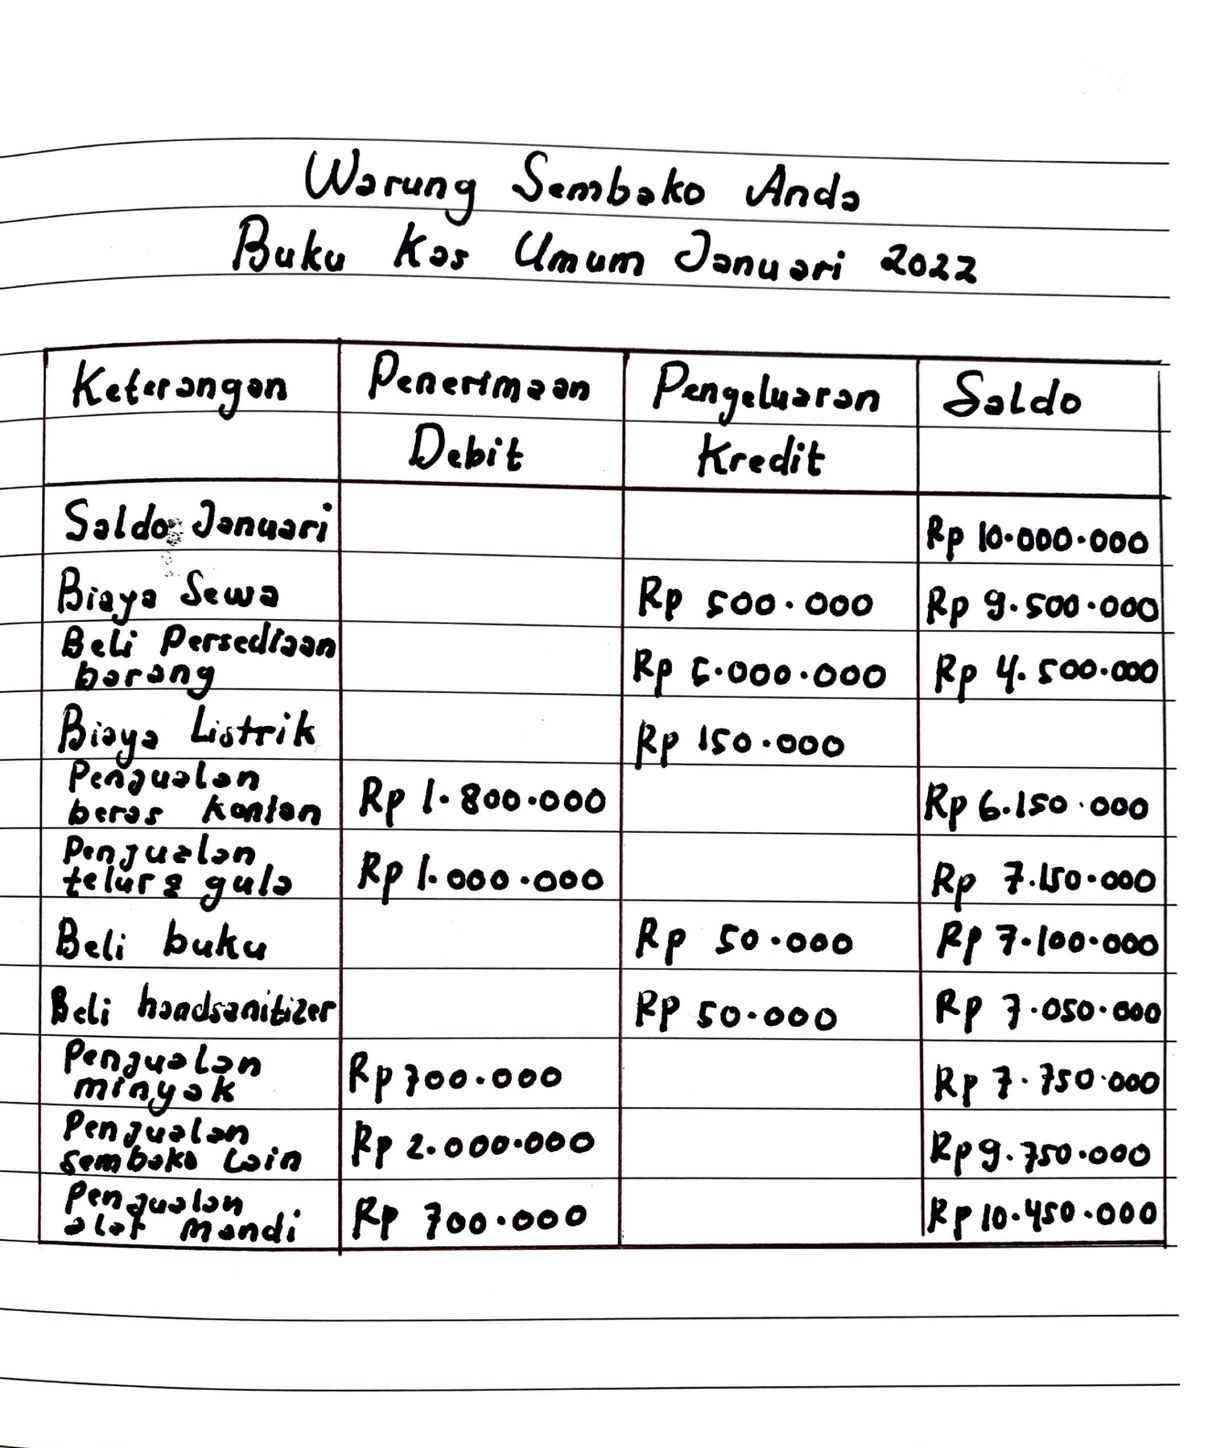 Warung Sembako Anda
Buku Kas Umum Januari 2022
Keterangan Penerimaan Debit Pengeluaran Kredit Saldo
Saldo Januari Rp 10.000.000
Biaya Sewa Rp 500.000 Rp 9.500.000
Beli Persediaan barang Rp 5.000.000 Rp 4.500.000
Biaya Listrik Rp 150.000
Penjualan beras kontan Rp 1.800.000 Rp 6.150.000
Penjualan telur & gula Rp 1.000.000 Rp 7.150.000
Beli buku Rp 50.000 Rp 7.100.000
Beli handsanitizer Rp 50.000 Rp 7.050.000
Penjualan minyak Rp 700.000 Rp 7.750.000
Penjualan sembako lain Rp 2.000.000 Rp 9.750.000
Penjualan alat mandi Rp 700.000 Rp 10.450.000